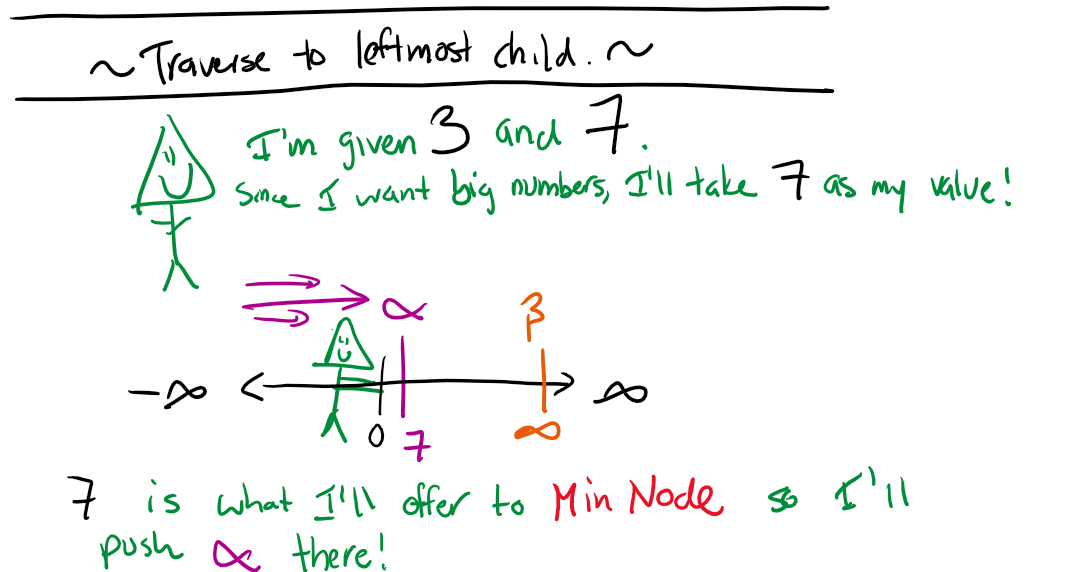 ~ Traverse to leftmost child. ~
I'm given 3 and 7.
Since I want big numbers, I'll take 7 as my value!
α β
-∞ ∞
0 7 ∞
7 is what I'll offer to Min Node so I'll
push α there!